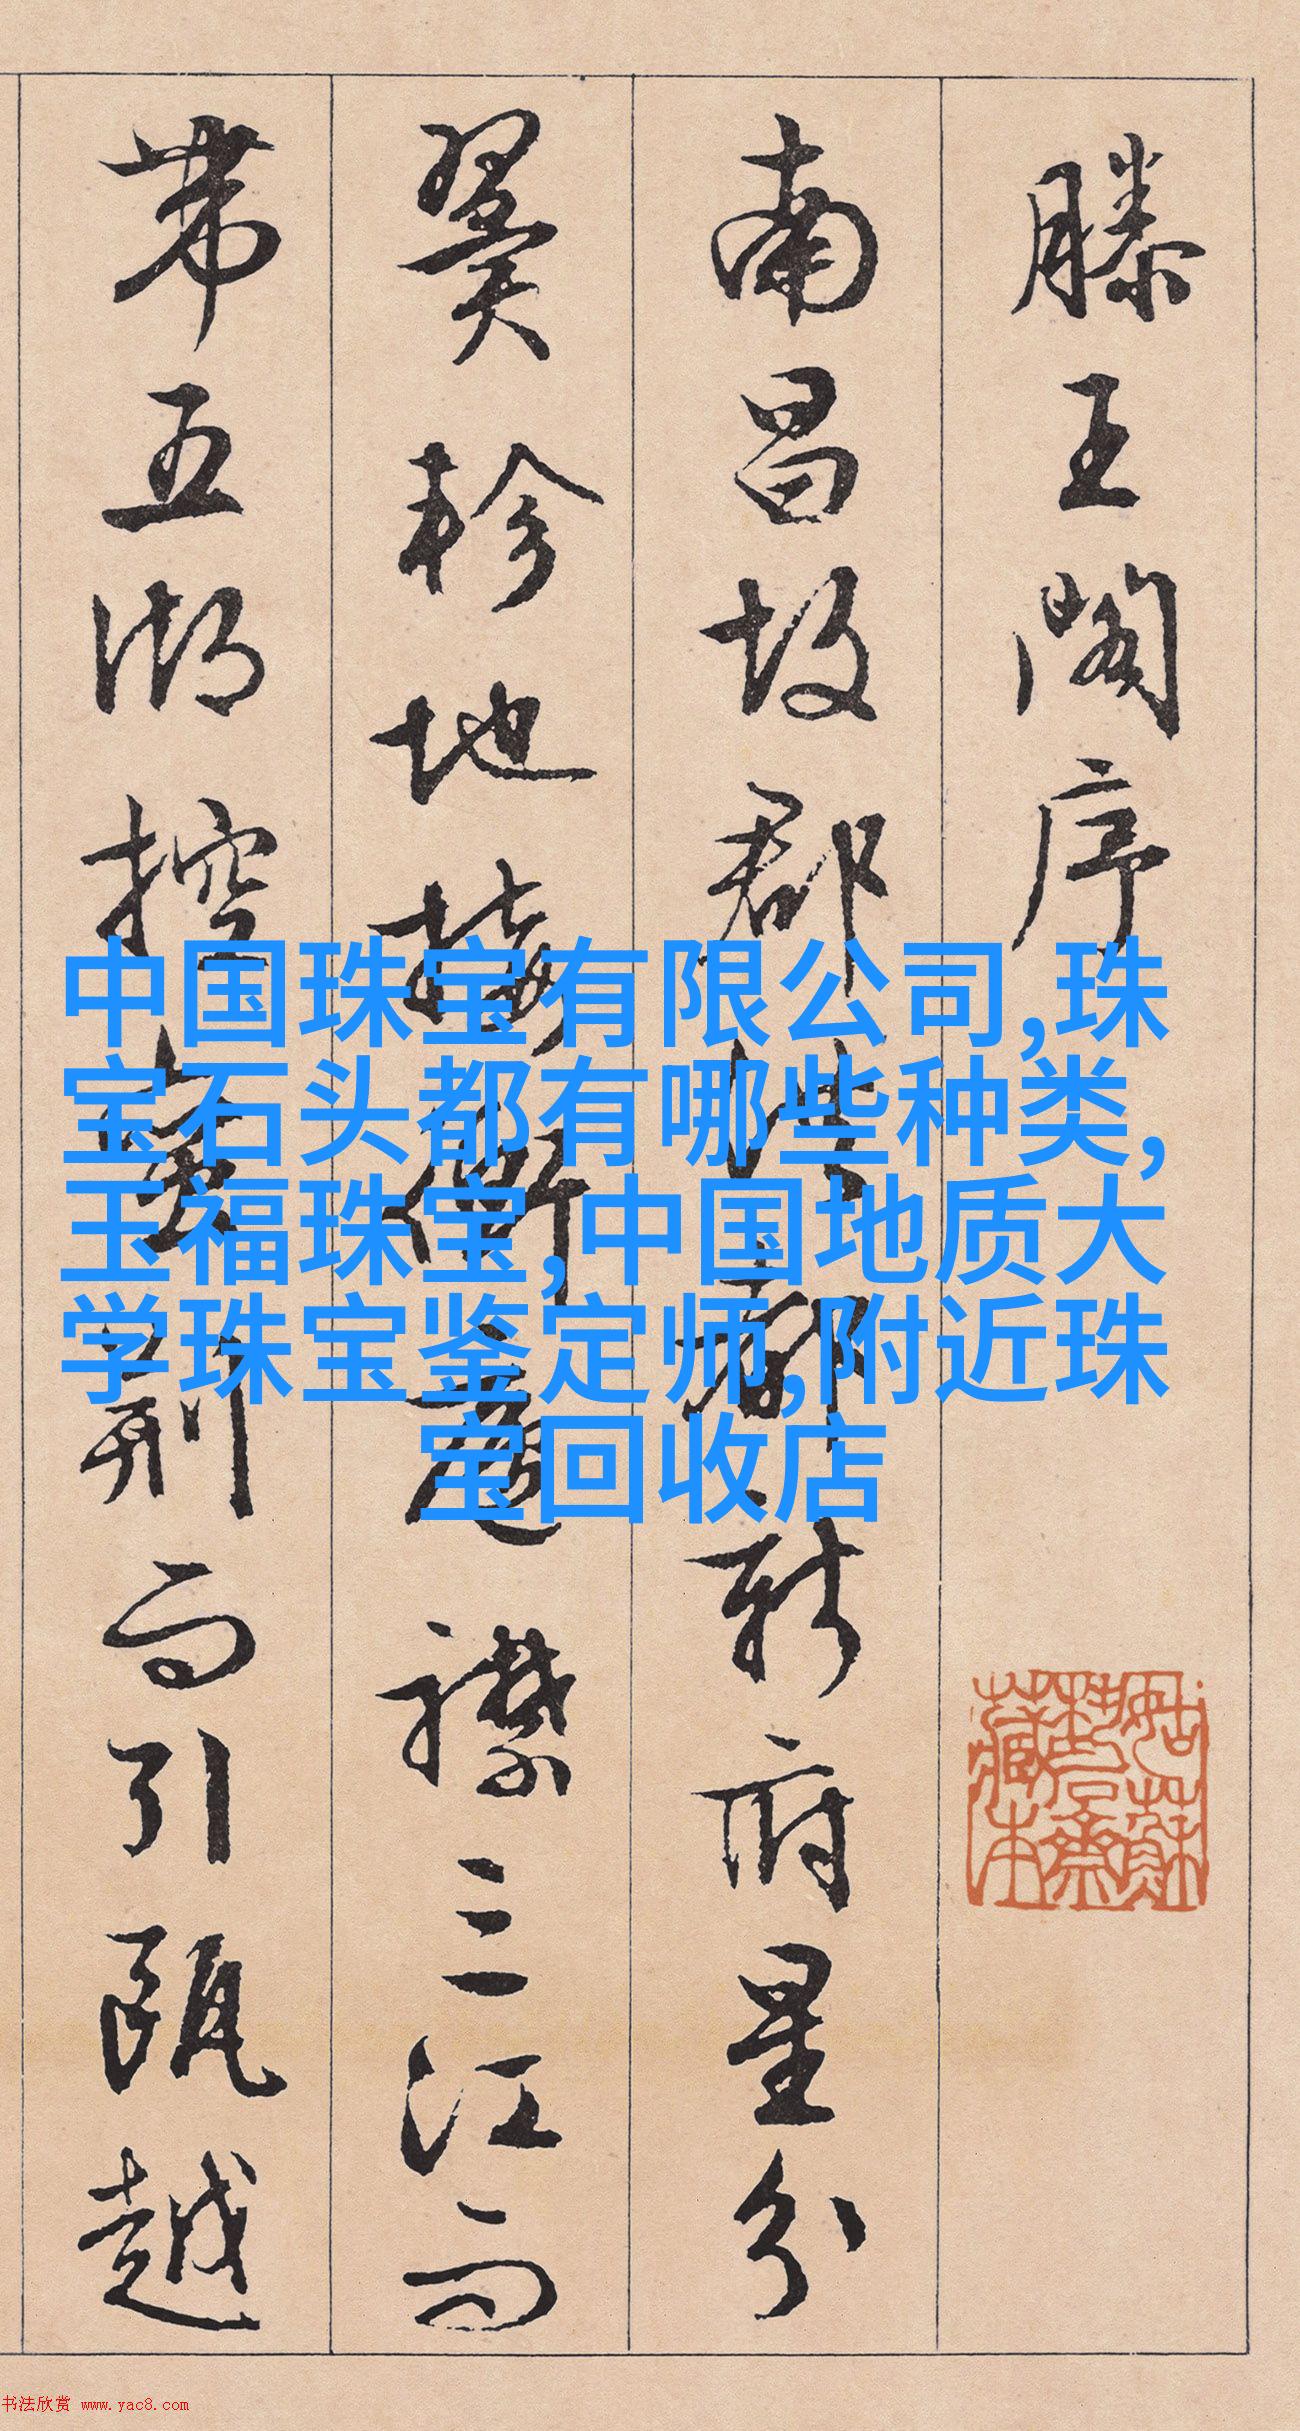 滕王阁序
南昌故郡洪都新府星分
翼轸地接衡庐襟三江而
带五湖控蛮荆而引瓯越
中国珠宝有限公司,珠
宝石头都有哪些种类,
玉福珠宝,中国地质大
学珠宝鉴定师,附近珠
宝回收店
藏本
书法欣赏 www.yac8.com